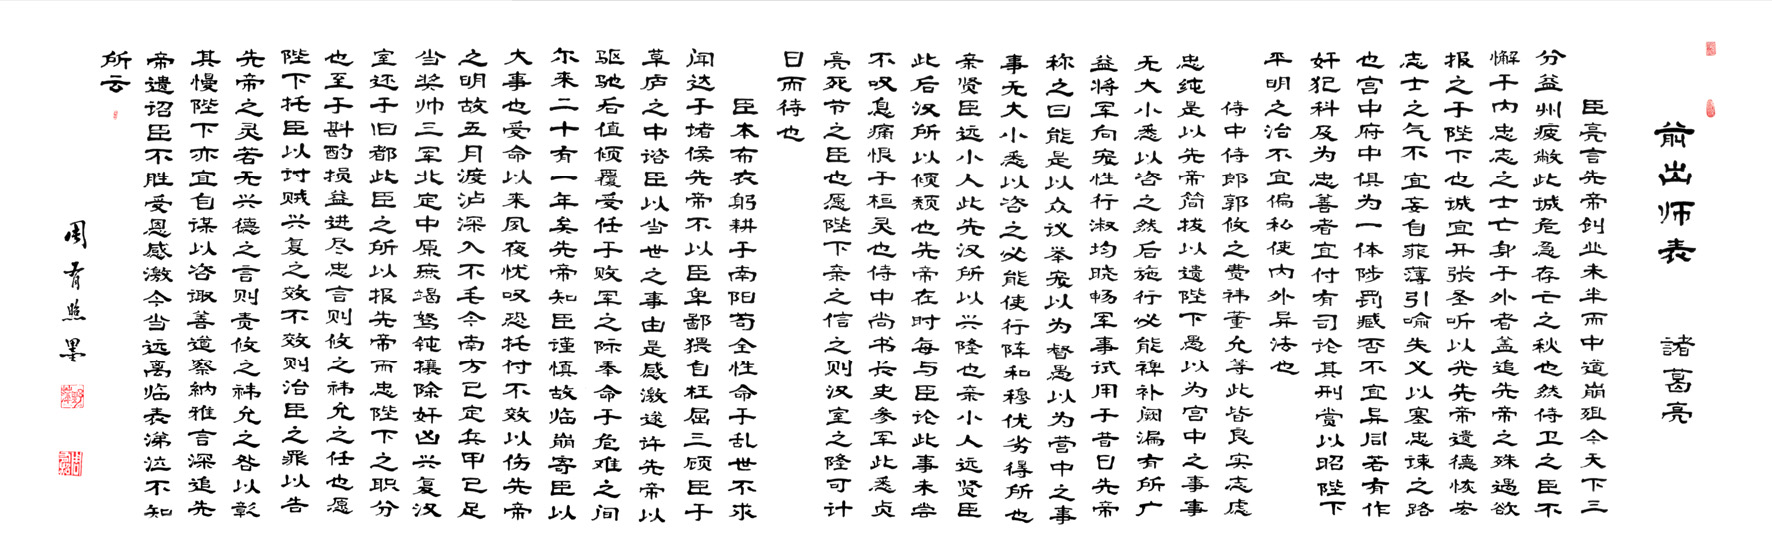 前出师表 諸葛亮
臣亮言先帝创业未半而中道崩殂今天下三
分益州疲敝此诚危急存亡之秋也然侍卫之臣不
懈于内忠志之士亡身于外者盖追先帝之殊遇欲
报之于陛下也诚宜开张圣听以光先帝遗德恢宏
志士之气不宜妄自菲薄引喻失义以塞忠谏之路
也宫中府中俱为一体陟罚臧否不宜异同若有作
奸犯科及为忠善者宜付有司论其刑赏以昭陛下
平明之治不宜偏私使内外异法也
侍中侍郎郭攸之费祎董允等此皆良实志虑
忠纯是以先帝简拔以遗陛下愚以为宫中之事事
无大小悉以咨之然后施行必能裨补阙漏有所广
益将军向宠性行淑均晓畅军事试用于昔日先帝
称之曰能是以众议举宠以为督愚以为营中之事
事无大小悉以咨之必能使行阵和穆优劣得所也
亲贤臣远小人此先汉所以兴隆也亲小人远贤臣
此后汉所以倾颓也先帝在时每与臣论此事未尝
不叹息痛恨于桓灵也侍中尚书长史参军此悉贞
亮死节之臣也愿陛下亲之信之则汉室之隆可计
日而待也
臣本布衣躬耕于南阳苟全性命于乱世不求
闻达于诸侯先帝不以臣卑鄙猥自枉屈三顾臣于
草庐之中咨臣以当世之事由是感激遂许先帝以
驱驰后值倾覆受任于败军之际奉命于危难之间
尔来二十有一年矣先帝知臣谨慎故临崩寄臣以
大事也受命以来夙夜忧叹恐托付不效以伤先帝
之明故五月渡泸深入不毛今南方已定兵甲已足
当奖帅三军北定中原庶竭驽钝攘除奸凶兴复汉
室还于旧都此臣之所以报先帝而忠陛下之职分
也至于斟酌损益进尽忠言则攸之祎允之任也愿
陛下托臣以讨贼兴复之效不效则治臣之罪以告
先帝之灵若无兴德之言则责攸之祎允之咎以彰
其慢陛下亦宜自谋以咨诹善道察納雅言深追先
帝遗诏臣不胜受恩感激今当远离临表涕泣不知
所云
周育照墨